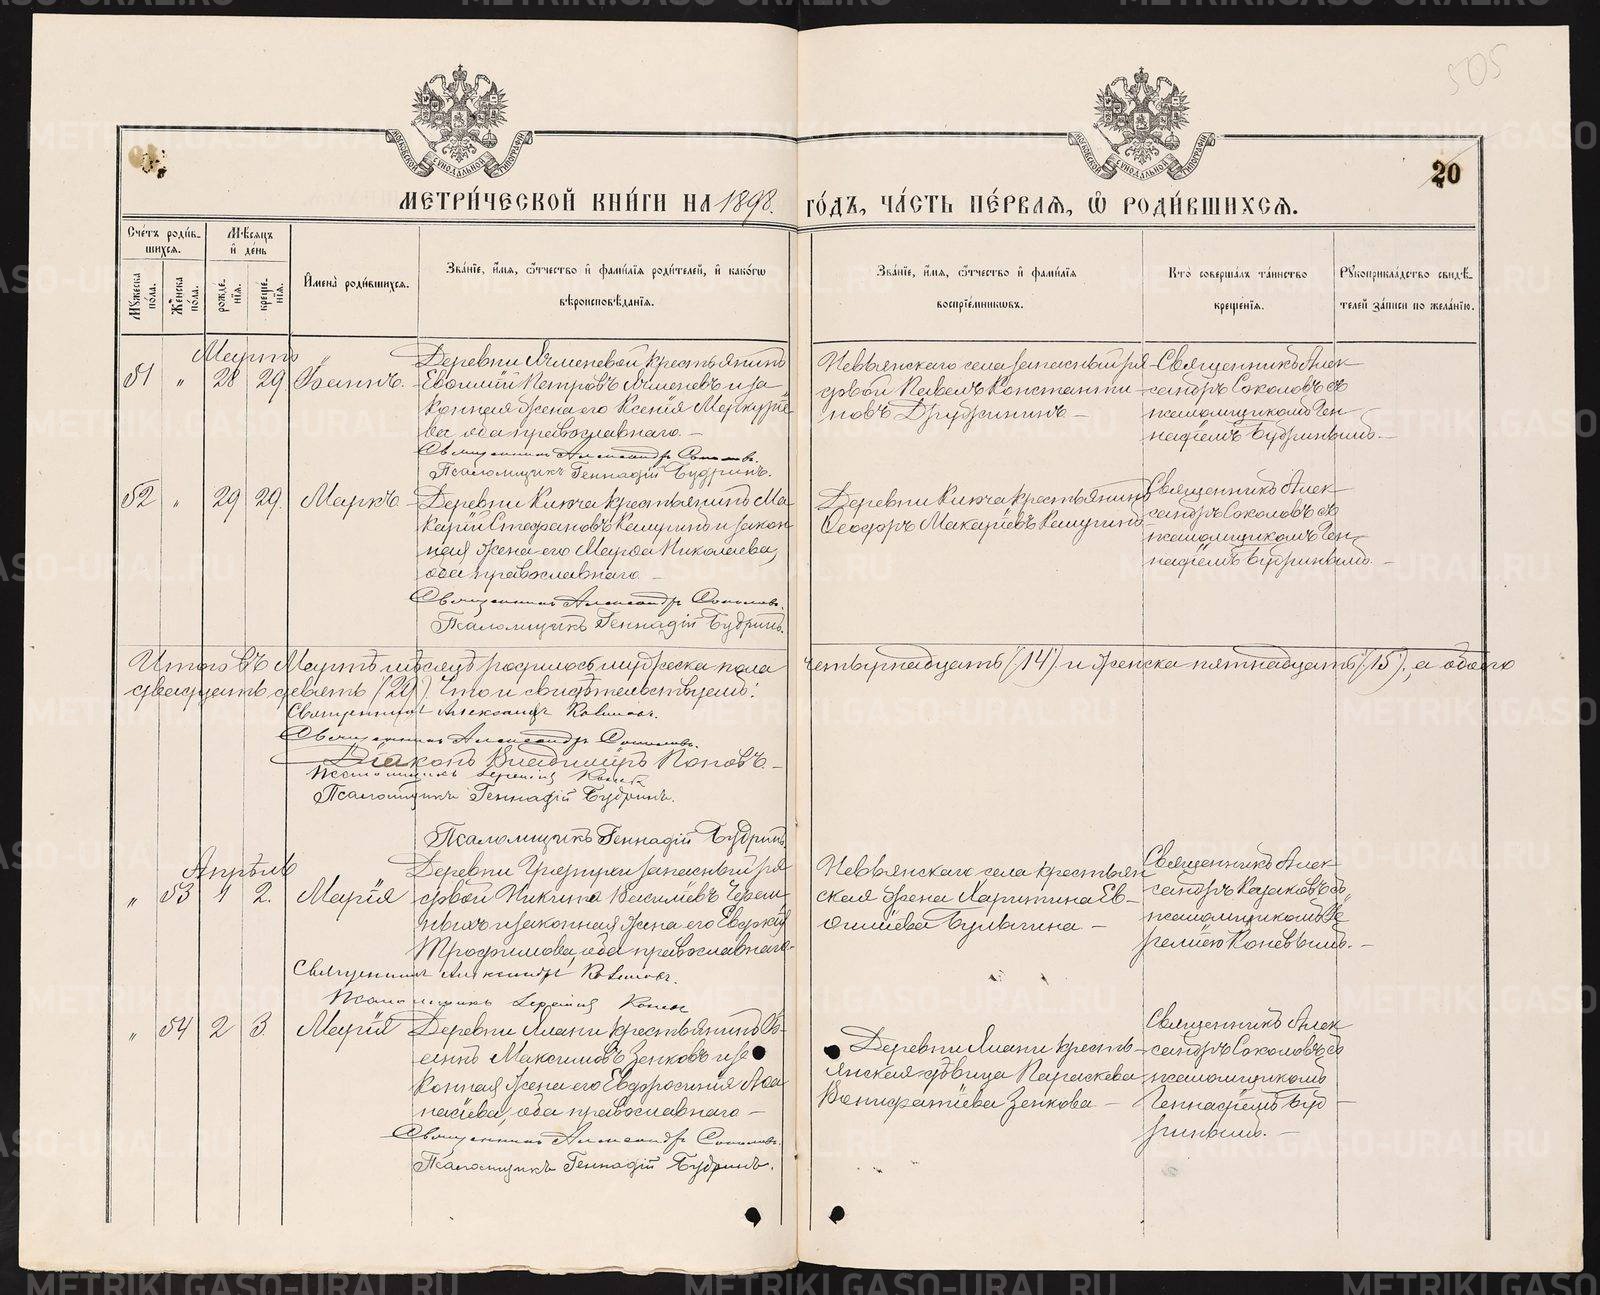 505
20
МЕТРИ́ЧЕСКОЙ КНИ́ГИ НА 1898. ГО́ДЪ, ЧА́СТЬ ПЕ́РВАѦ, Ѡ РОДИ́ВШИХСѦ.
Сче́тъ роди́в-
шихсѧ.
Мꙋ́жеска по́ла.
Же́нска по́ла.
Мѣ́сѧцъ и де́нь
рожде́-
нїѧ.
креще́-
нїѧ.
Имена̀ роди́вшихсѧ.
Зва́нїе, и́мѧ, ѻ́тчество и фами́лїѧ роди́телей, и како́гѡ
вѣроисповѣ́данїѧ.
Зва́нїе, и́мѧ, ѻ́тчество и фами́лїѧ
воспрїе́мникѡвъ.
Кто̀ соверша́лъ та́инство
креще́нїѧ.
Рꙋкоприкла́дство свидѣ́-
телей за́писи по жела́нїю.
Мартъ
51 " 28 29 Іоаннъ.
Деревни Ячменевой крестьянинъ
Евѳимій Петровъ Ячменевъ и за
конная жена его Ксенія Меркуріе
ва оба православнаго. –
Священникъ Александръ Соколовъ.
Псаломщикъ Геннадій Будринъ.
Невьянскаго села запасный ря
довой Павелъ Константи
новъ Дружининъ –
Священникъ Алек
сандръ Соколовъ съ
псаломщикомъ Ген
надіемъ Будринымъ. –
52 " 29 29. Маркъ.
Деревни Ключа крестьянинъ Ма
карій Стефановъ Кашунинъ и закон
ная жена его Марѳа Николаева,
оба православнаго –
Священникъ Александръ Соколовъ.
Псаломщикъ Геннадій Будринъ.
Деревни Ключа крестьянинъ
Ѳеодоръ Макаріевъ
Священникъ Алек
сандръ Соколовъ съ
псаломщикомъ Ген
надіемъ Будринымъ. –
Итого въ Мартѣ мѣсяцѣ родилось мужеска пола четырнадцать (14) и женска пятнадцать (15), а обоего
двадцать девять (29). Что и свидѣтельствуемъ:
Священникъ Александръ
Священникъ Александръ Соколовъ.
Діаконъ Владиміръ Поповъ. –
Псаломщикъ Іеремія
Псаломщикъ Геннадій Будринъ.
Псаломщикъ Геннадій Будринъ
Апрѣль
" 53 1 2. Марія
Деревни запасный ря
довой Никита Васильевъ Черем-
ныхъ и законная жена его Евдокія
Трофимова, оба православнаго.
Священникъ Александръ
Псаломщикъ Іеремія
Невьянскаго села крестьян
ская жена Харитина Ев-
ѳиміева Булыгина –
Священникъ Алек
сандръ съ
псаломщикомъ Іе
реміею Коневымъ. –
" 54 2 3 Марія
Деревни Ялани крестьянинъ
Максимовъ Зенковъ и за
конная жена его Евдоросинія Аѳа
насіева, оба православнаго –
Священникъ Александръ Соколовъ.
Псаломщикъ Геннадій Будринъ.
Деревни Ялани кресть-
янская дѣвица Параскева
Вонифатіева Зенкова –
Священникъ Алек
сандръ Соколовъ съ
псаломщикомъ
Геннадіемъ Буд
ринымъ. –